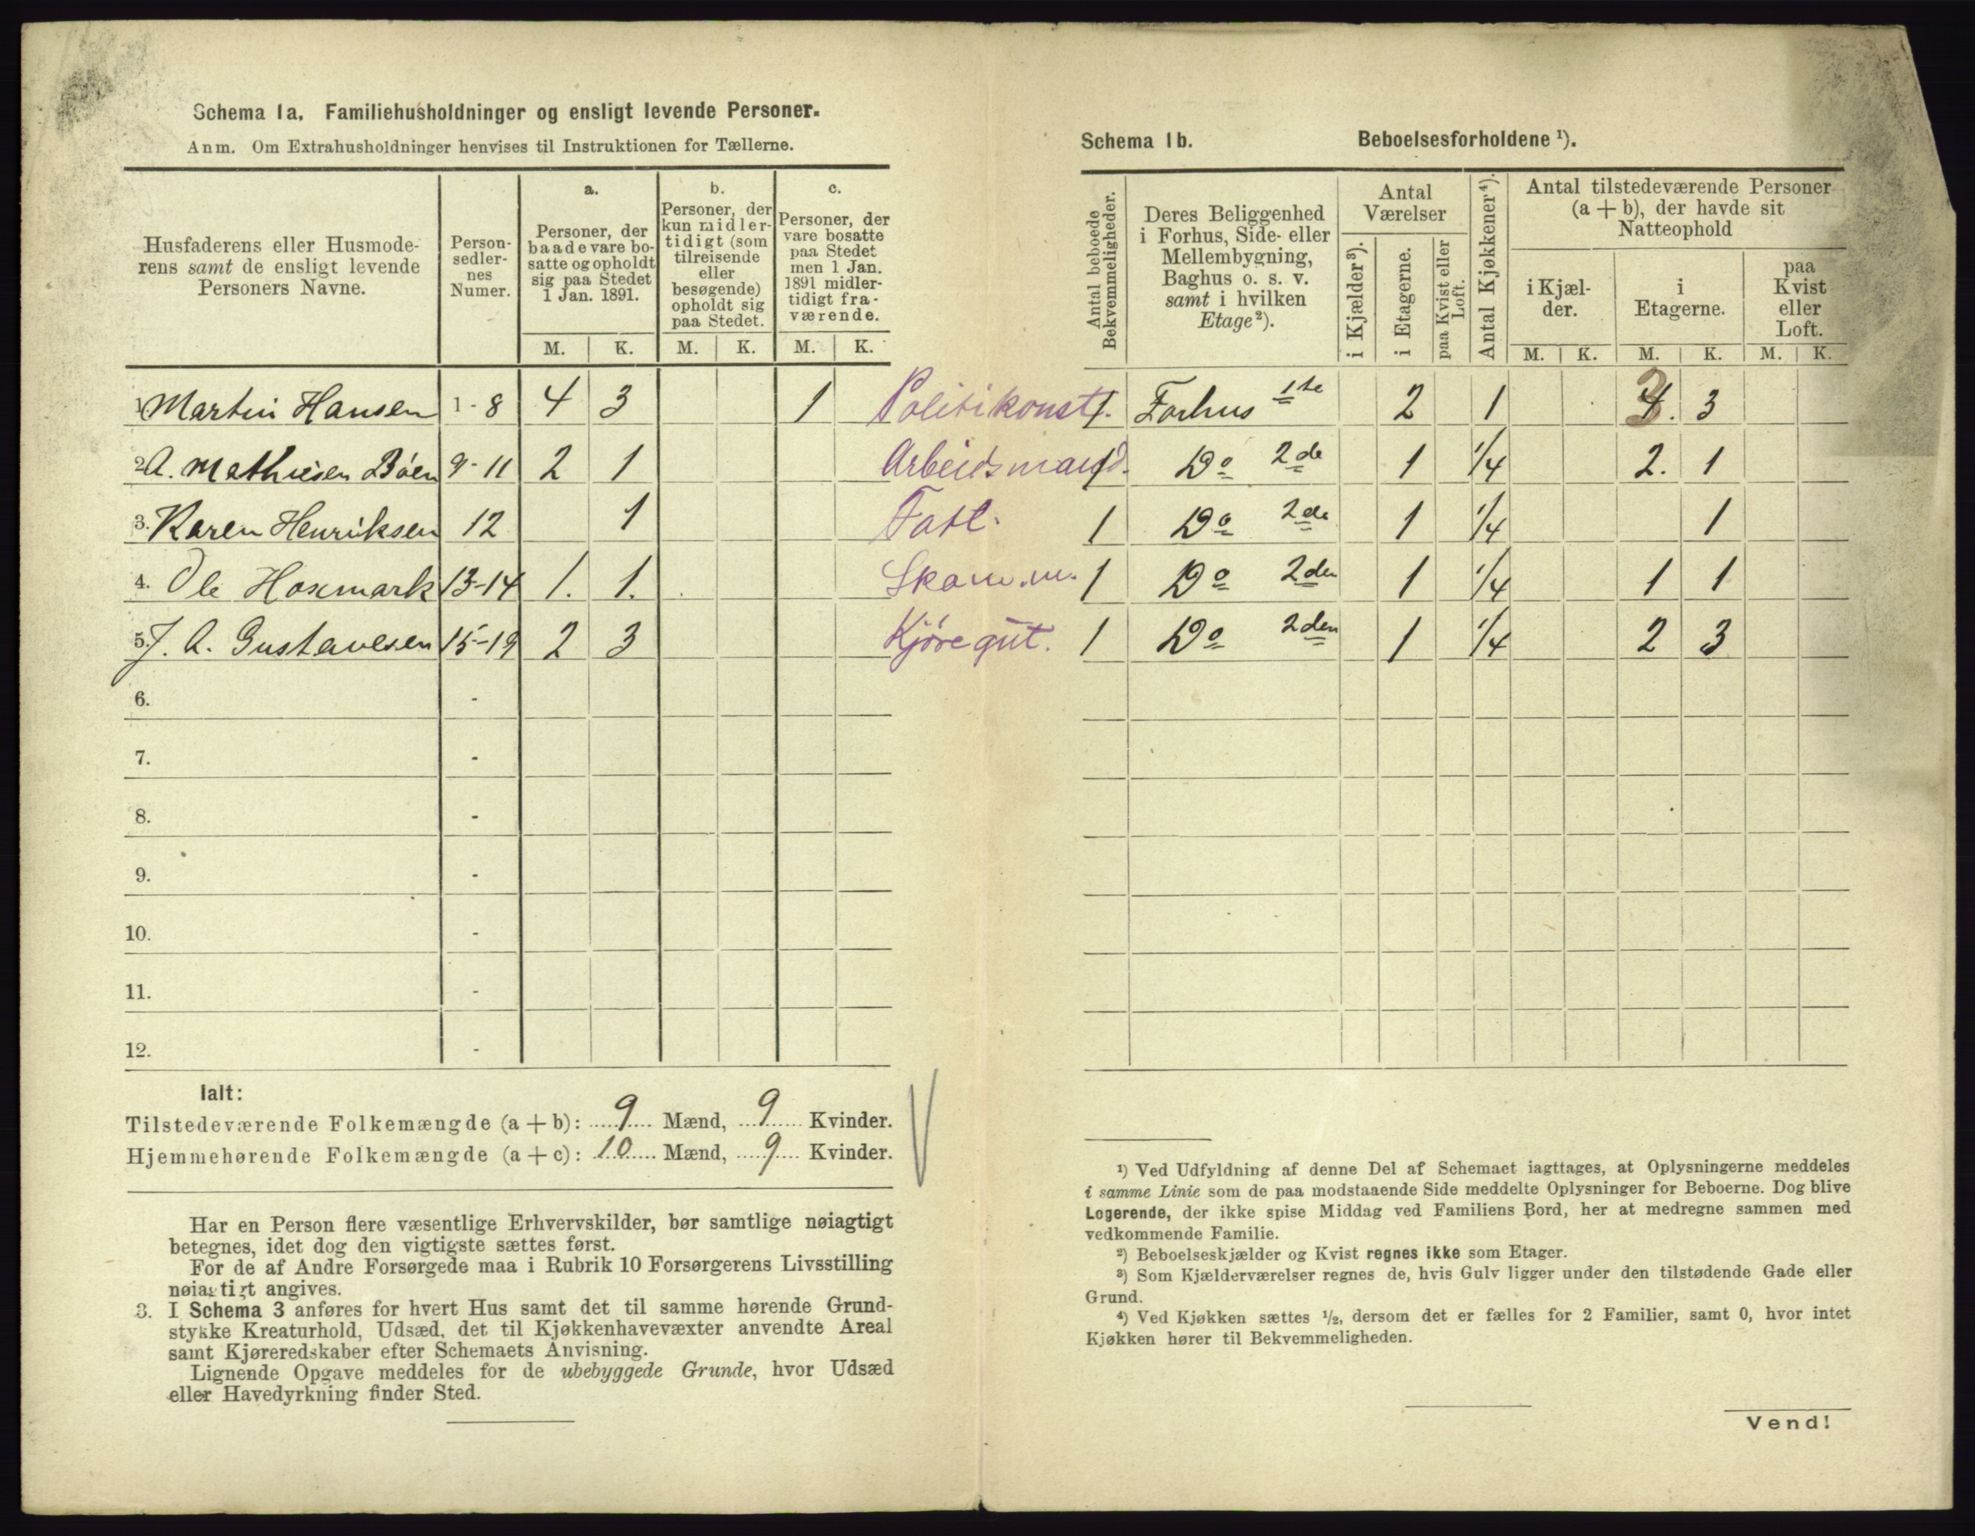 Schema 1a. Familiehusholdninger og ensligt levende Personer.
Anm. Om Extrahusholdninger henvises til Instruktionen for Tællerne.
Husfaderens eller Husmoderens samt de ensligt levende Personers Navne.
Personsedlernes Numer.
a. Personer, der baade vare bosatte og opholdt sig paa Stedet 1 Jan. 1891.
b. Personer, der kun midlertidigt (som tilreisende eller besøgende) opholdt sig paa Stedet.
c. Personer, der vare bosatte paa Stedet men 1 Jan. 1891 midlertidigt fraværende.
M. K. M. K. M. K.
1 Martin Hansen 1-8 4 3 1 Politikonst.
2 A. Mathiesen Böen 9-11 2 1 Arbeidsmand.
3. Karen Henriksen 12 1 Fatt.
4. Ole Hoxmark 13-14 1. 1. Skom.m.
5. J. A. Gustavesen 15-19 2 3 Kjøregut.
6. -
7. -
8. -
9. -
10. -
11. -
12. -
Ialt:
Tilstedeværende Folkemængde (a+b): 9 Mænd, 9 Kvinder.
Hjemmehørende Folkemængde (a+c): 10 Mænd, 9 Kvinder.
Har en Person flere væsentlige Erhvervskilder, bør samtlige nøiagtigt
betegnes, idet dog den vigtigste sættes først.
For de af Andre Forsørgede maa i Rubrik 10 Forsørgerens Livsstilling
nøiagtigt angives.
3. I Schema 3 anføres for hvert Hus samt det til samme hørende Grund-
stykke Kreaturhold, Udsæd, det til Kjøkkenhavevæxter anvendte Areal
samt Kjøreredskaber efter Schemaets Anvisning.
Lignende Opgave meddeles for de ubebyggede Grunde, hvor Udsæd
eller Havedyrkning finder Sted.
Schema 1b. Beboelsesforholdene ¹).
Antal beboede Bekvemmeligheder.
Deres Beliggenhed i Forhus, Side- eller Mellembygning, Baghus o. s. v. samt i hvilken Etage²).
Antal Værelser
i Kjælder³).
i Etagerne.
paa Kvist eller Loft.
Antal Kjøkkener⁴).
Antal tilstedeværende Personer (a+b), der havde sit Natteophold
i Kjælder.
i Etagerne.
paa Kvist eller Loft.
M. K. M. K. M. K.
1 Forhus 1ste 2 1 3 3
1 Do 2de 1 1/4 2. 1
1 Do 2de 1 1/4 1
1 Do 2den 1 1/4 1 1
1 Do 2den 1 1/4 2 3
¹) Ved Udfyldning af denne Del af Schemaet iagttages, at Oplysningerne meddeles
i samme Linie som de paa modstaaende Side meddelte Oplysninger for Beboerne. Dog blive
Logerende, der ikke spise Middag ved Familiens Bord, her at medregne sammen med
vedkommende Familie.
²) Beboelseskjælder og Kvist regnes ikke som Etager.
³) Som Kjælderværelser regnes de, hvis Gulv ligger under den tilstødende Gade eller
Grund.
⁴) Ved Kjøkken sættes ½, dersom det er fælles for 2 Familier, samt 0, hvor intet
Kjøkken hører til Bekvemmeligheden.
Vend!